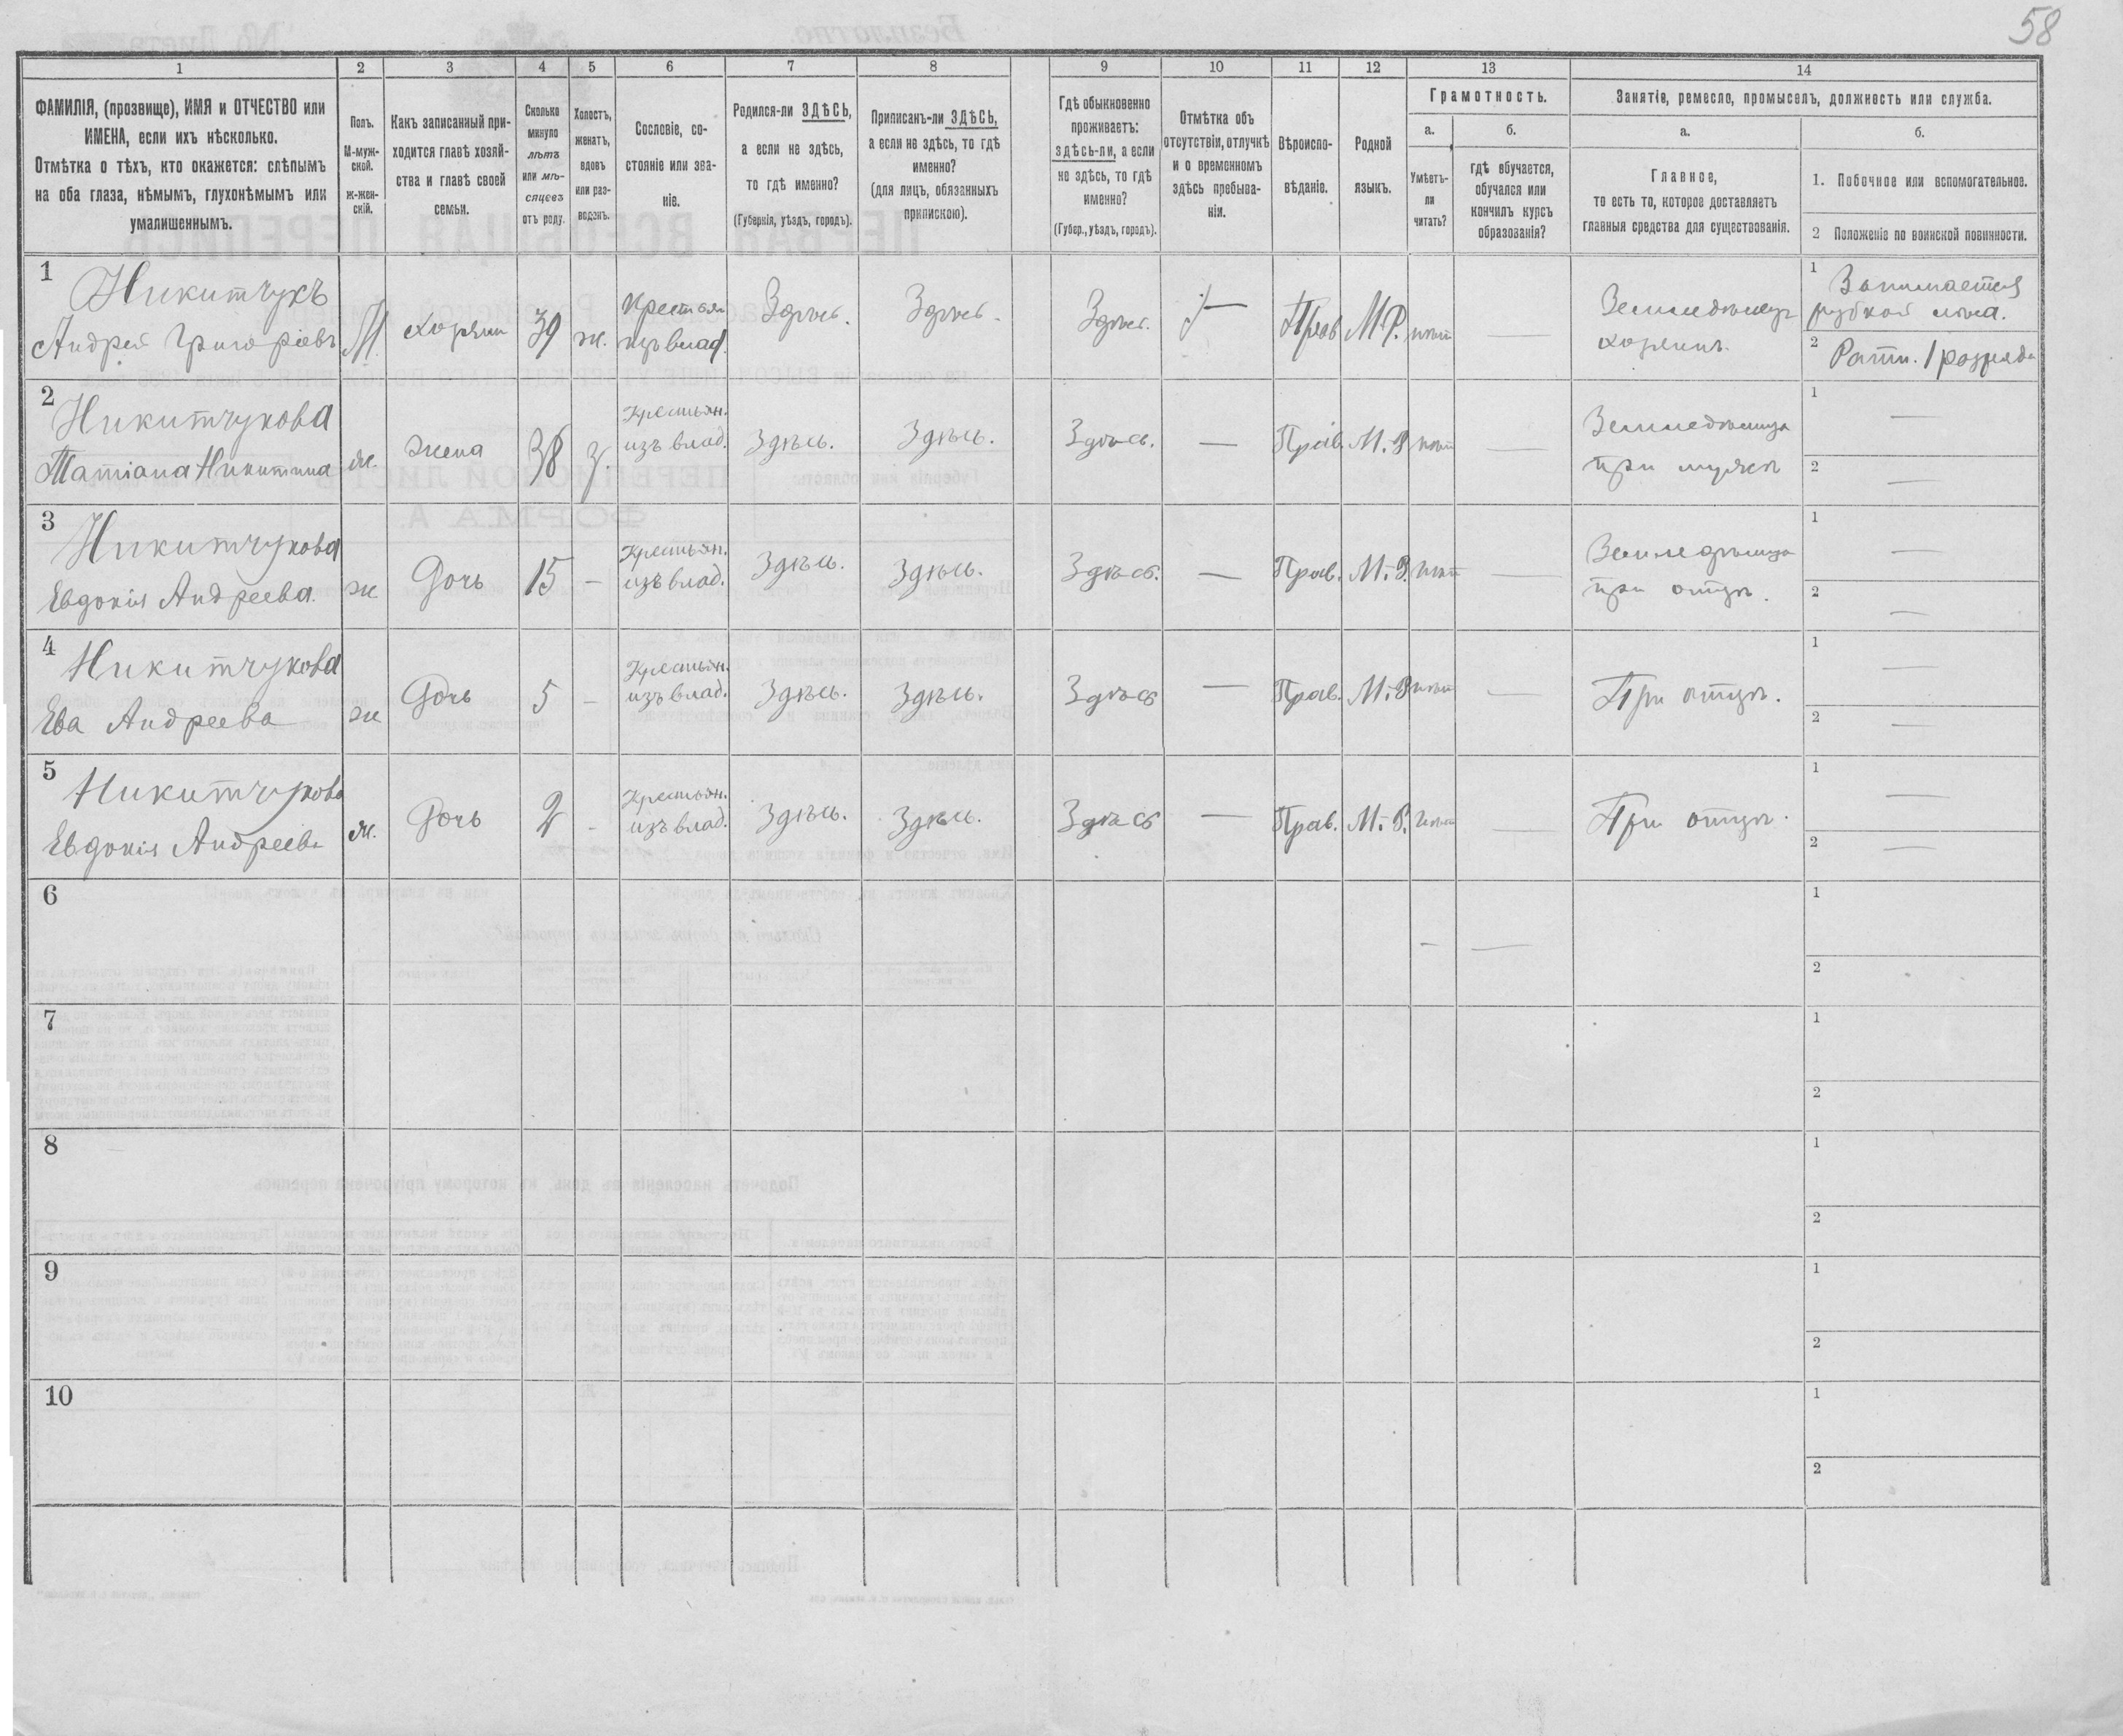 58
1 2 3 4 5 6 7 8 9 10 11 12 13 14
ФАМИЛІЯ, (прозвище), ИМЯ и ОТЧЕСТВО или
ИМЕНА, если ихъ нѣсколько.
Отмѣтка о тѣхъ, кто окажется: слѣпымъ
на оба глаза, нѣмымъ, глухонѣмымъ или
умалишеннымъ.
Полъ.
М-муж-
ской.
ж-жен-
скій.
Какъ записанный при-
ходится главѣ хозяй-
ства и главѣ своей
семьи.
Сколько
минуло
лѣтъ
или мѣ-
сяцевъ
отъ роду.
Холостъ,
женатъ,
вдовъ
или раз-
веденъ.
Сословіе, со-
стояніе или зва-
ніе.
Родился-ли ЗДѢСЬ,
а если не здѣсь,
то гдѣ именно?
(Губернія, уѣздъ, городъ).
Приписанъ-ли ЗДѢСЬ,
а если не здѣсь, то гдѣ
именно?
(для лицъ, обязанныхъ
припискою).
Гдѣ обыкновенно
проживаетъ:
здѣсь-ли, а если
не здѣсь, то гдѣ
именно?
(Губер., уѣздъ, городъ).
Отмѣтка объ
отсутствіи, отлучкѣ
и о временномъ
здѣсь пребыва-
ніи.
Вѣроиспо-
вѣданіе.
Родной
языкъ.
Грамотность.
а.
Умѣетъ-
ли
читать?
б.
гдѣ обучается,
обучался или
кончилъ курсъ
образованія?
Занятіе, ремесло, промыселъ, должность или служба.
а.
Главное,
то есть то, которое доставляетъ
главныя средства для существованія.
б.
1. Побочное или вспомогательное.
2 Положеніе по воинской повинности.
1
Никитчукъ
Андрей Григоріевъ
М.
хозяин
39
ж.
Крестьян
изъ влад.
Здѣсь.
Здѣсь.
Здѣсь.
—
Прав
М.Р.
нѣт
—
Земледѣлец
хозяинъ.
1 Занимается
рубкой лѣса.
2 Ратн. 1 разряда
2
Никитчукова
Татіана Никитина
ж.
жена
38
з.
Крестьян.
изъ влад.
Здѣсь.
Здѣсь.
Здѣсь.
—
Прав.
М.-Р
нѣт
—
Земледѣлица
при мужѣ
1 —
2 —
3
Никитчукова
Евдокія Андреева.
ж
Дочь
15
—
Крестьян.
изъ влад.
Здѣсь.
Здѣсь.
Здѣсь.
—
Прав.
М.-Р.
нѣт
—
Земледѣлица
при отцѣ.
1 —
2 —
4
Никитчукова
Ева Андреева
ж
Дочь
5
—
Крестьян.
изъ влад.
Здѣсь.
Здѣсь.
Здѣсь
—
Прав.
М.-Р
нѣт
—
При отцѣ.
1 —
2 —
5
Никитчукова
Евдокія Андреева
ж.
Дочь
2
-
Крестьян.
изъ влад.
Здѣсь.
Здѣсь.
Здѣсь
—
Прав.
М.-Р.
нѣт
—
При отцѣ.
1 —
2 —
6
- —
1
2
7
1
2
8
1
2
9
1
2
10
1
2